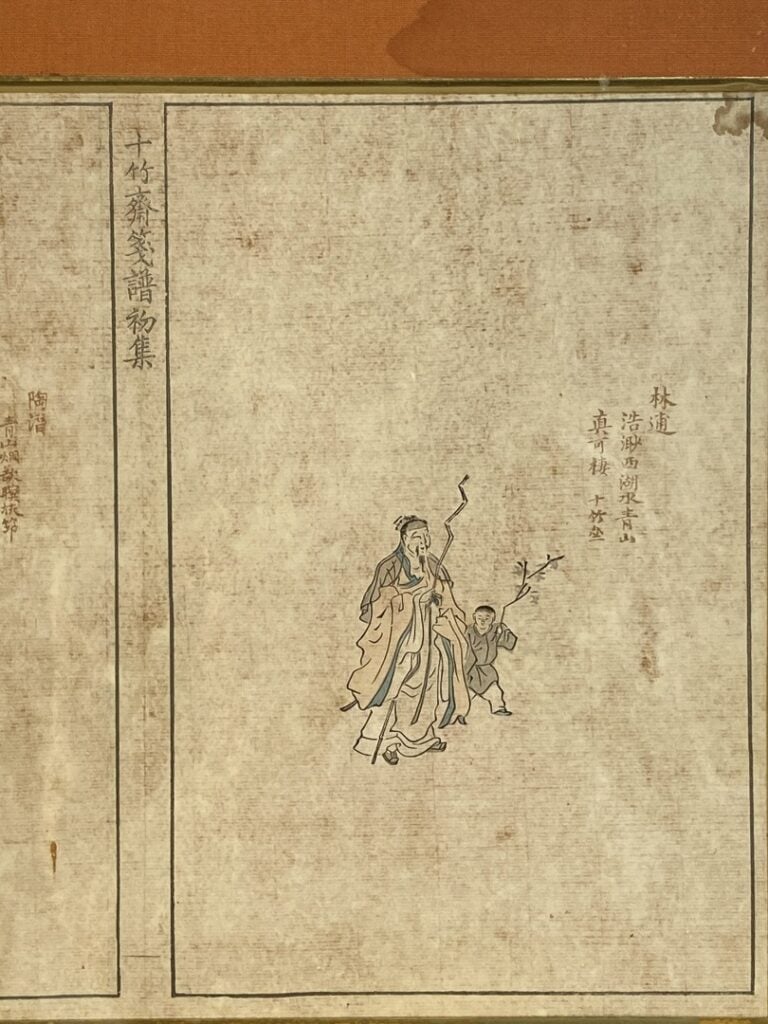 林逋
浩渺西湖水青山
真可棲 十竹
十竹齋箋譜初集
陶潛
青山烟